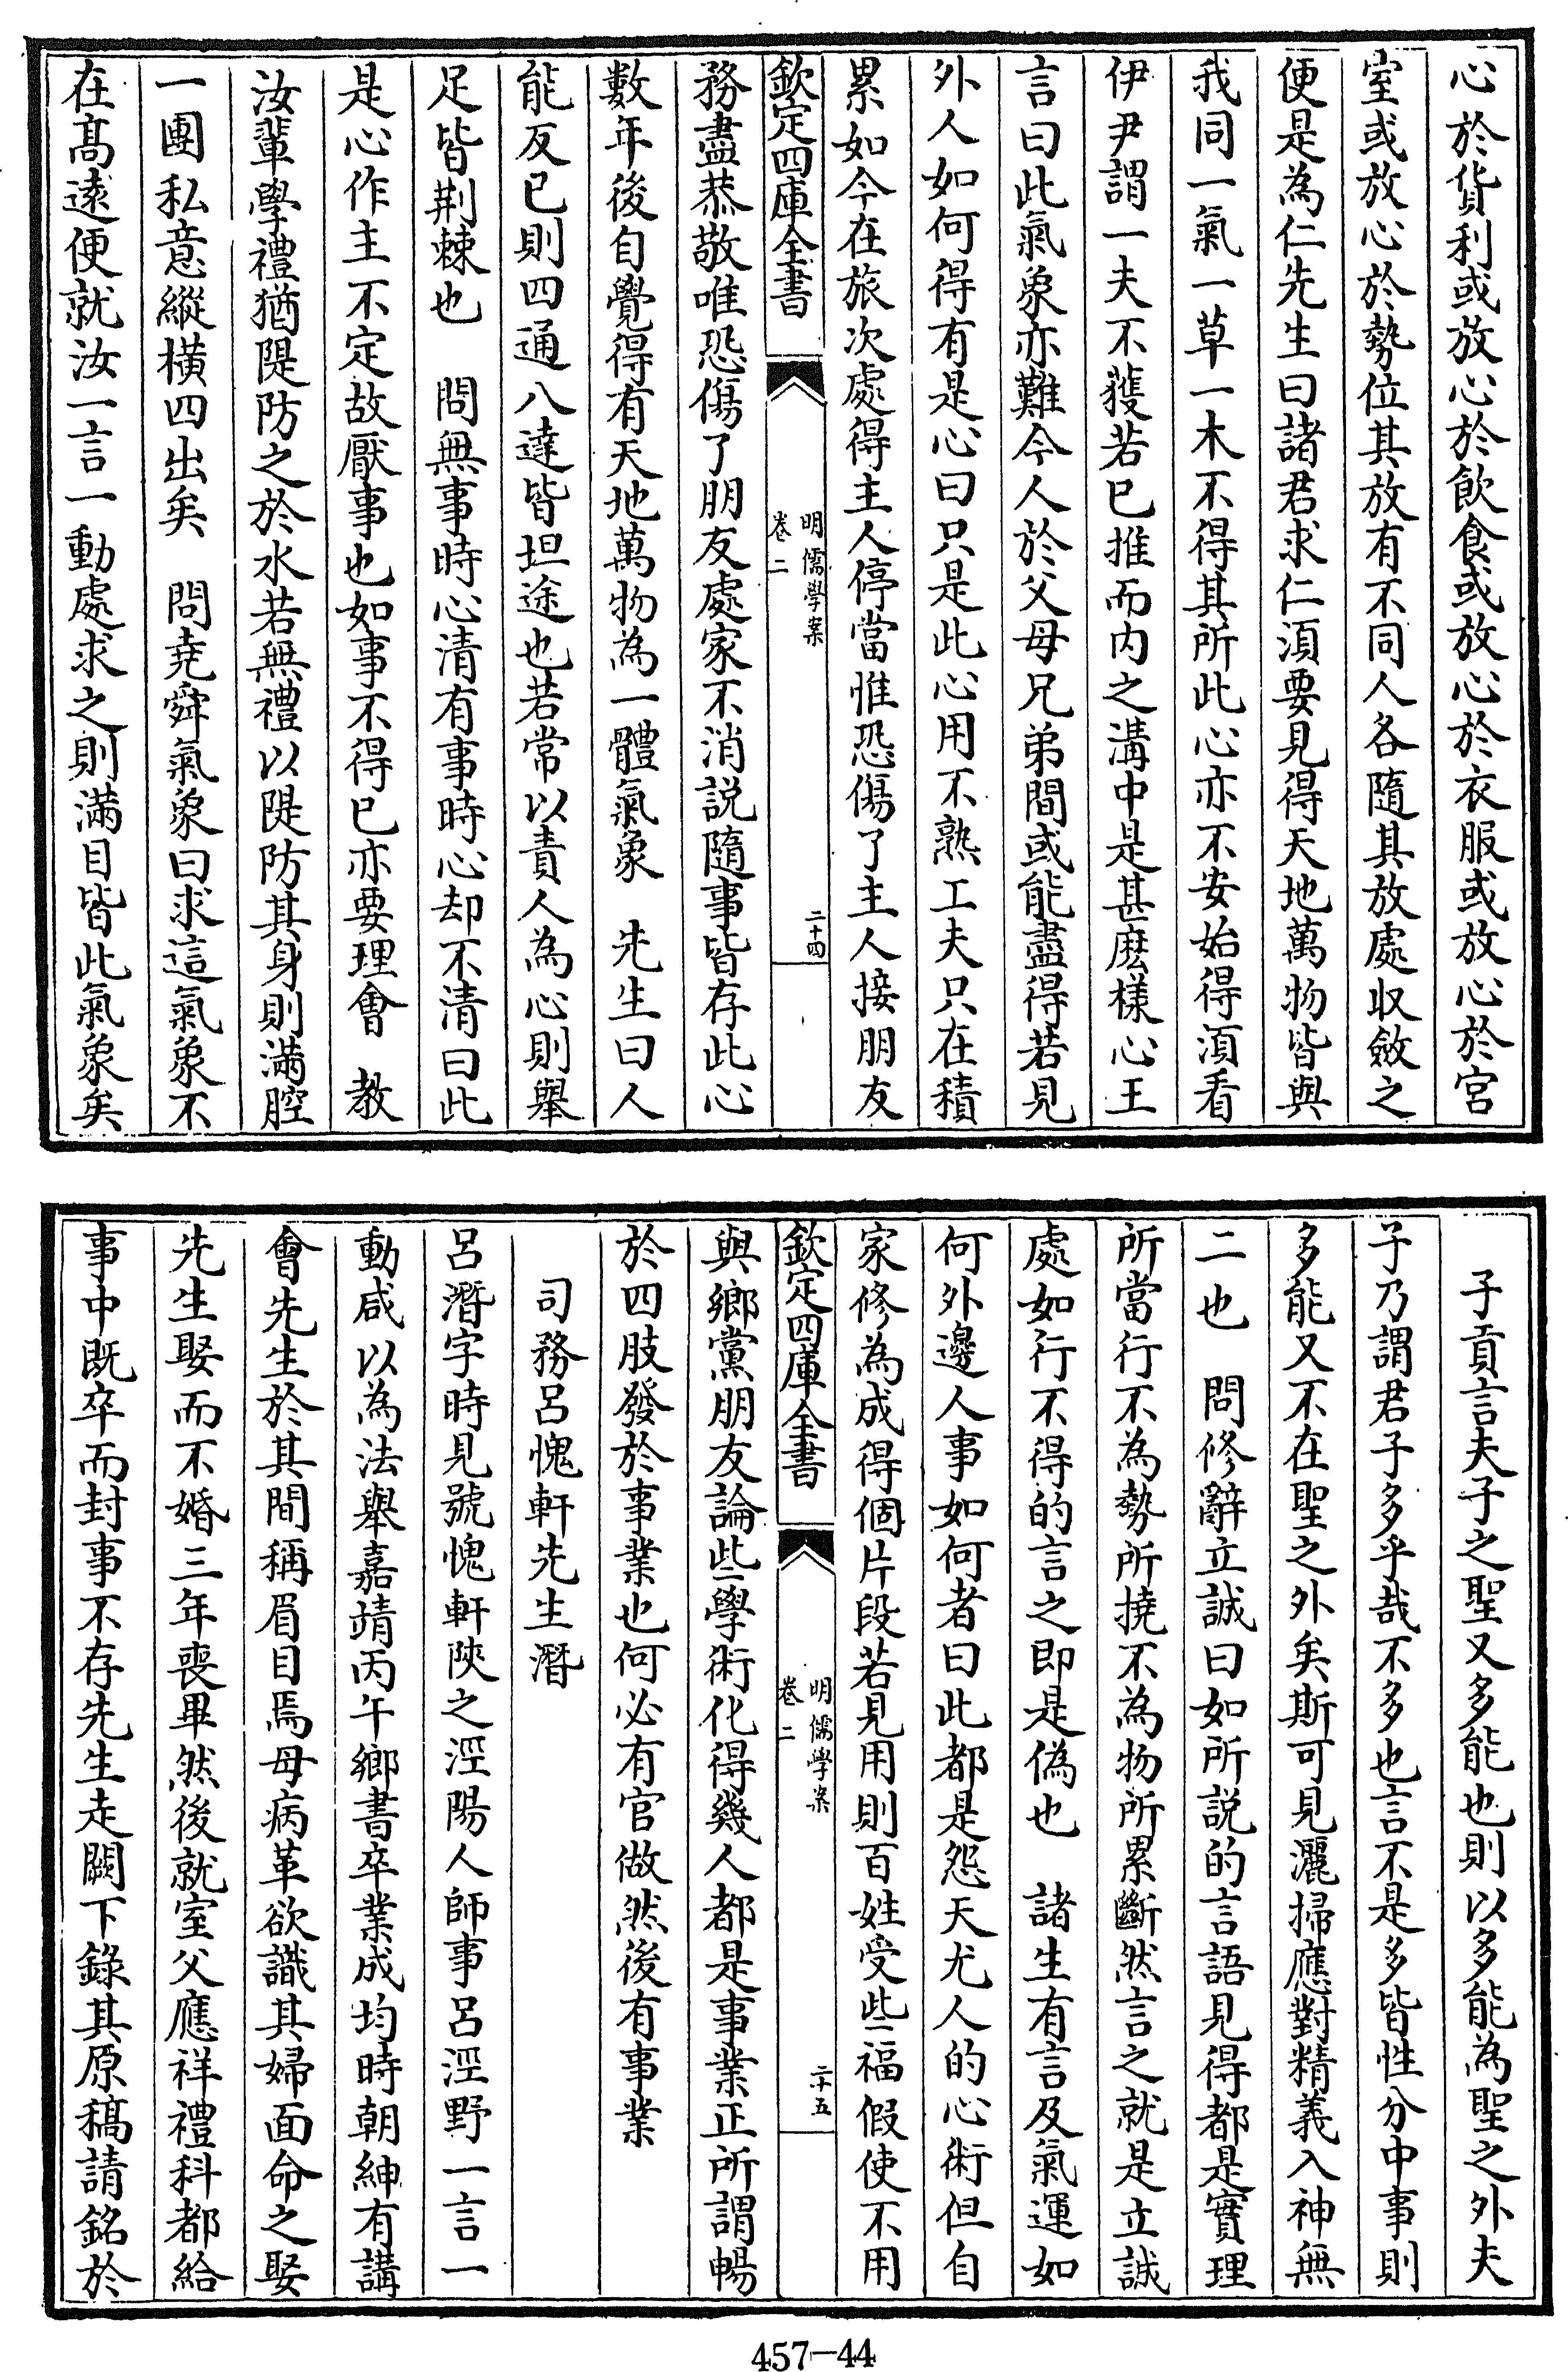 心於貨利或放心於飲食或放心於衣服或放心於宮
室或放心於勢位其放有不同人各隨其放處收斂之
便是為仁先生曰諸君求仁須要見得天地萬物皆與
我同一氣一草一木不得其所此心亦不安始得須看
伊尹謂一夫不獲若已推而内之溝中是甚麽様心王
言曰此氣象亦難今人於父母兄弟間或能盡得若見
外人如何得有是心曰只是此心用不熟工夫只在積
累如今在旅次處得主人停當惟恐傷了主人接朋友
欽定四庫全書
明儒學案
卷二
二十四
務盡恭敬唯恐傷了朋友處家不消説隨事皆存此心
數年後自覺得有天地萬物為一體氣象　先生曰人
能反已則四通八達皆坦途也若常以責人為心則舉
足皆荆棘也　問無事時心清有事時心却不清曰此
是心作主不定故厭事也如事不得已亦要理會　教
汝輩學禮猶隄防之於水若無禮以隄防其身則滿腔
一團私意縱橫四出矣　問堯舜氣象曰求這氣象不
在髙逺便就汝一言一動處求之則滿目皆此氣象矣
子貢言夫子之聖又多能也則以多能為聖之外夫
子乃謂君子多乎哉不多也言不是多皆性分中事則
多能又不在聖之外矣斯可見灑掃應對精義入神無
二也　問修辭立誠曰如所説的言語見得都是實理
所當行不為勢所撓不為物所累斷然言之就是立誠
處如行不得的言之即是偽也　諸生有言及氣運如
何外邊人事如何者曰此都是怨天尤人的心術但自
家修為成得個片段若見用則百姓受些福假使不用
欽定四庫全書
明儒學案
卷二
二十五
與鄉黨朋友論些學術化得幾人都是事業正所謂暢
於四肢發於事業也何必有官做然後有事業
司務呂愧軒先生潛
呂潛字時見號愧軒陜之涇陽人師事呂涇野一言一
動咸以為法舉嘉靖丙午鄉書卒業成均時朝紳有講
會先生於其間稱眉目焉母病革欲識其婦面命之娶
先生娶而不婚三年喪畢然後就室父應祥禮科都給
事中既卒而封事不存先生走闕下錄其原稿請銘於
457-44